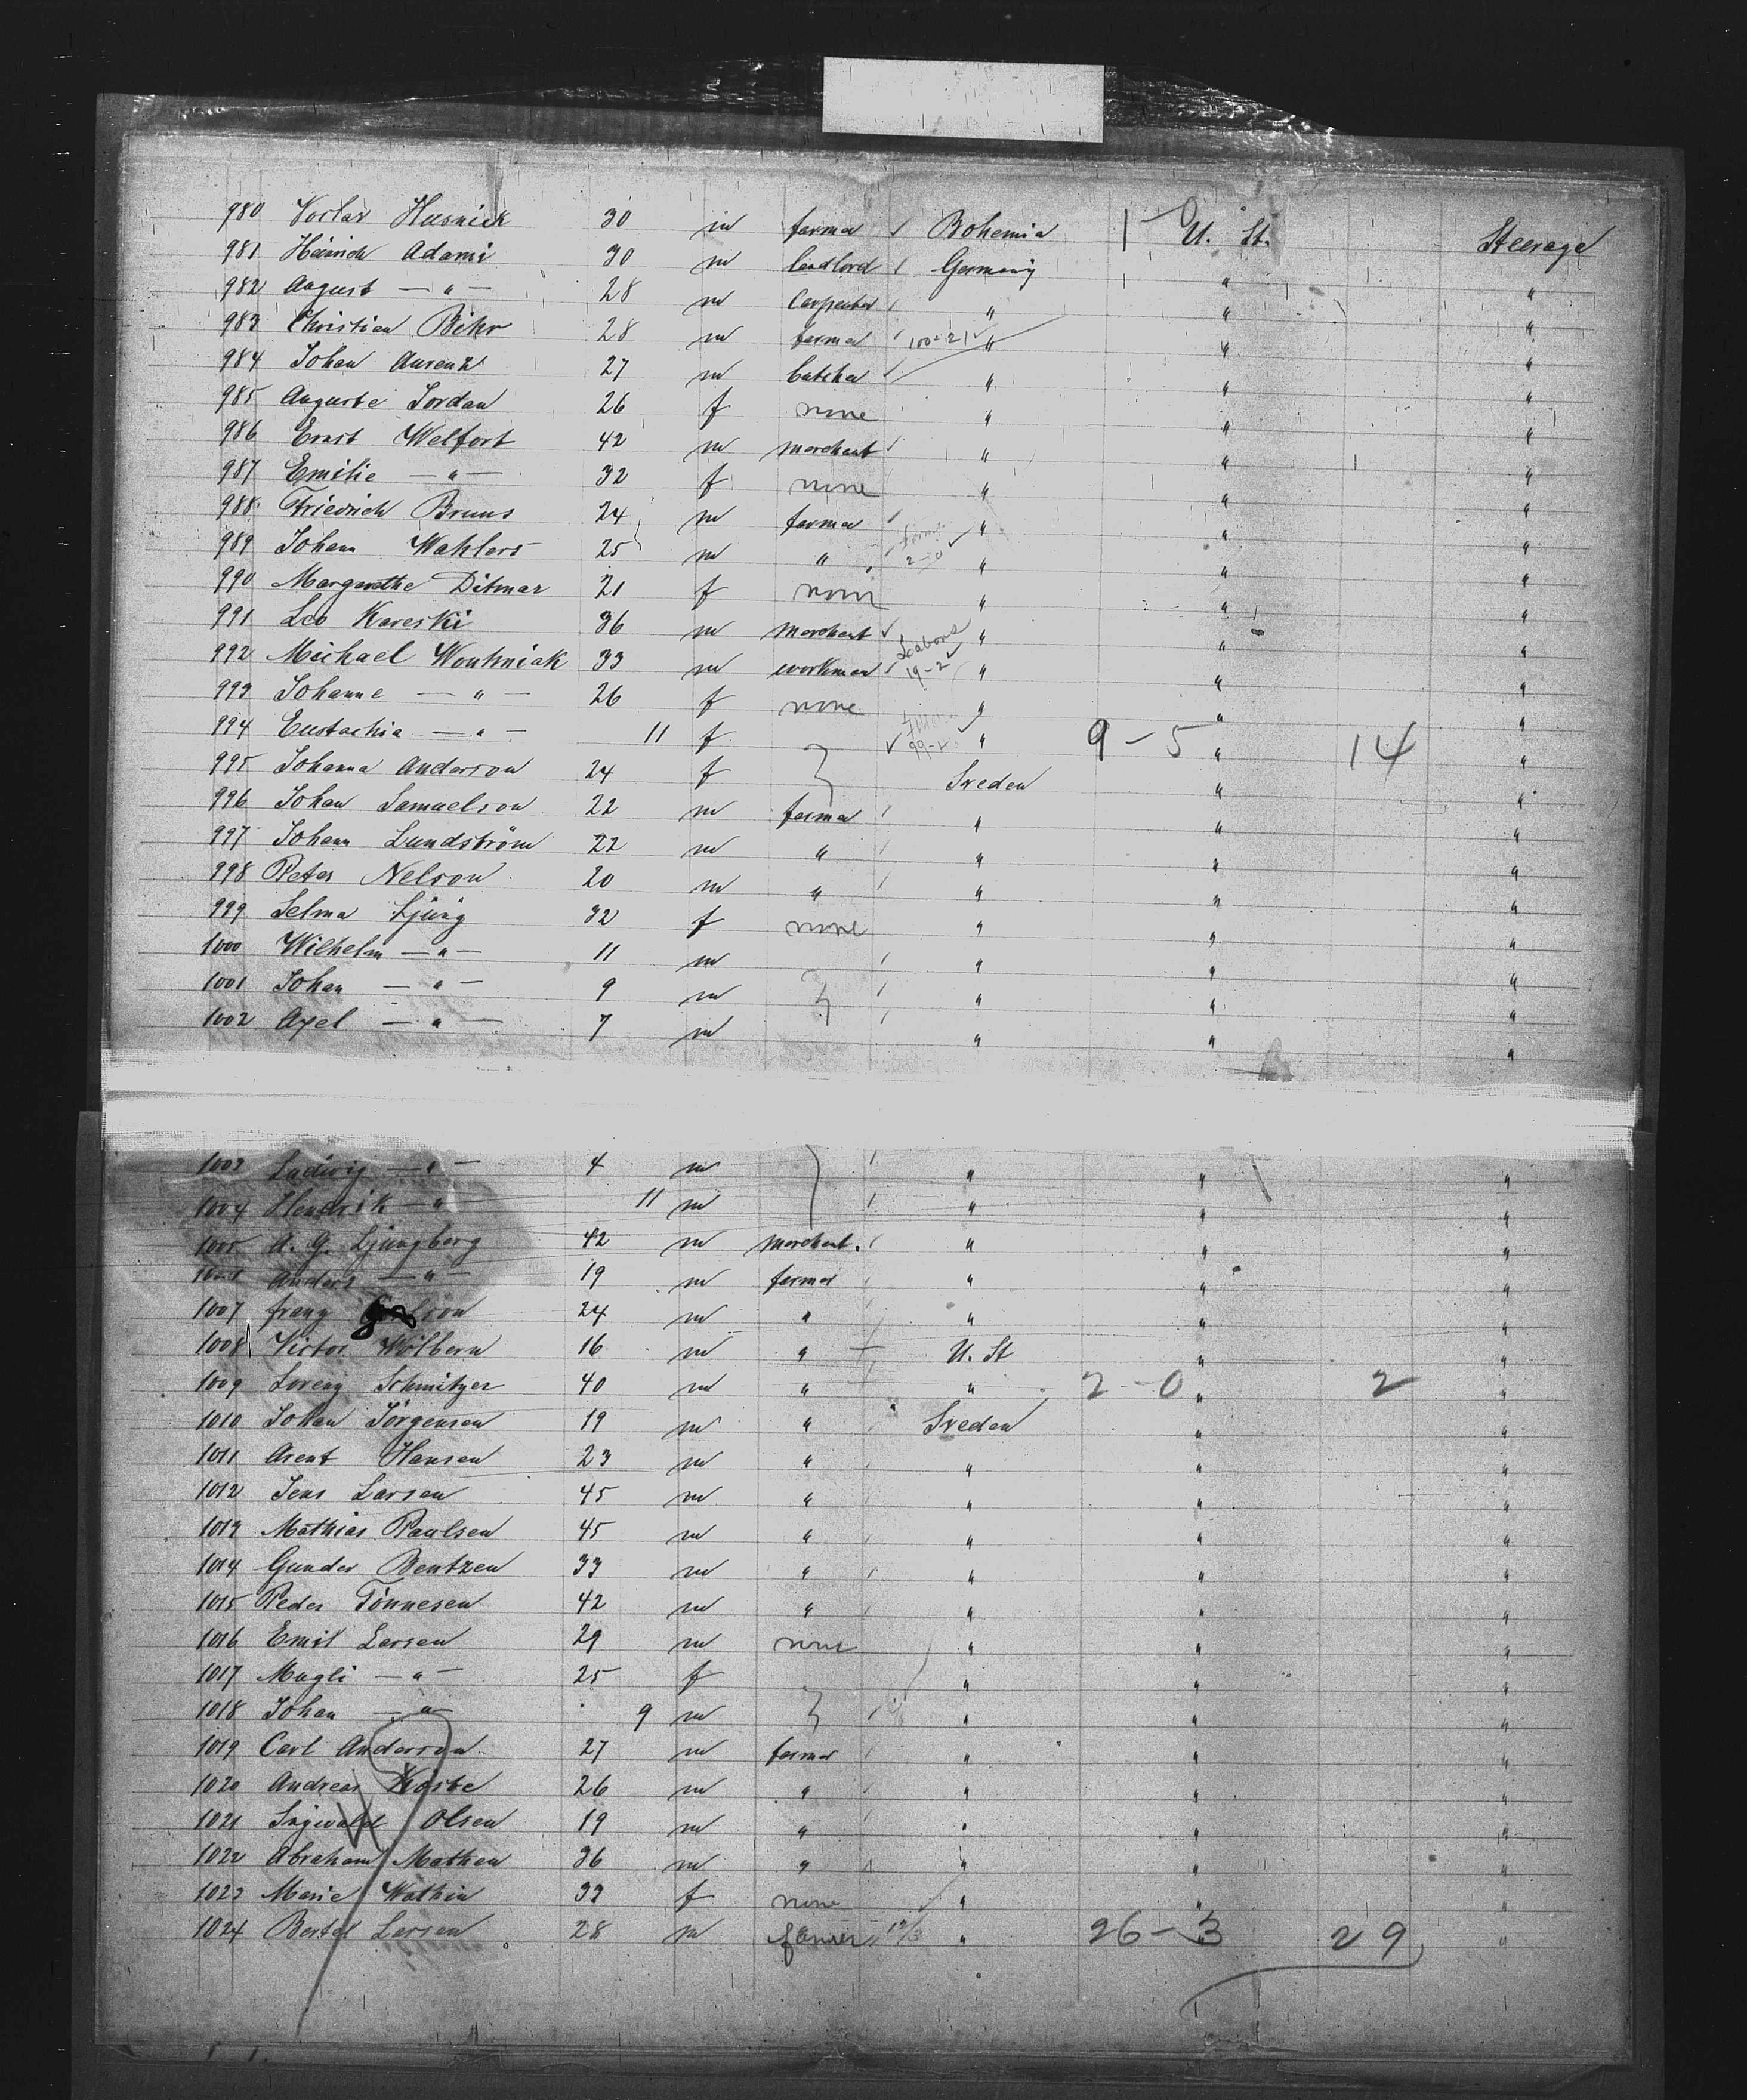 980 Voclav Husnick 30 m farmer Bohemia 1-0 U. St. Steerage
981 Heinrich Adami 30 m landlord Germany " "
982 August — " — 28 m Carpenter " " "
983 Christian Bihr 28 m farmer 100-21 " " "
984 Johan Aurenz 27 m butcher " " "
985 Auguste Jordan 26 f none " " "
986 Ernst Welfort 42 m merchant " " "
987 Emilie — " — 32 f none " " "
988 Friedrich Bruns 24 m farmer " " "
989 Johann Wahlers 25 m " 2-0 " " "
990 Margarethe Ditmar 21 f none " " "
991 Leo Kareski 36 m merchant " " "
992 Michael Wontniak 33 m workman Labors 19-2 " " "
993 Johanne — " — 26 f none " " "
994 Eustachia — " — 11 f } " 9-5 " 14 "
995 Johanna Anderson 24 f Sveden " "
996 Johan Samuelson 22 m farmer " " "
997 Johann Lundström 22 m " " " "
998 Peter Nelson 20 m " " " "
999 Selma Ljung 32 f none " " "
1000 Wilhelm — " — 11 m " " "
1001 Johan — " — 9 m } " " "
1002 Axel — " — 7 m " " "
1003 Ludwig — " — 4 m " " "
1004 Hendrik — " — 11 m " " "
1005 A. G. Ljungberg 42 m merchant " " "
1006 Anders — " — 19 m farmer " " "
1007 franz 24 m " " " "
1008 Victor Wölbern 16 m " U. St " "
1009 Lorenz Schmitzer 40 m " " 2-0 " 2 "
1010 Johan Jörgensen 19 m " Sveden " "
1011 Arent Hansen 23 m " " " "
1012 Jens Larsen 45 m " " " "
1013 Mathias Paulsen 45 m " " " "
1014 Gunder Bentzen 33 m " " " "
1015 Peder Tönnesen 42 m " " " "
1016 Emil Larsen 29 m none " " "
1017 Magli — " — 25 f " " "
1018 Johan — " — 9 m } " " "
1019 Carl Anderson 27 m farmer " " "
1020 Andreas Koste 26 m " " " "
1021 Sigwald Olsen 19 m " " " "
1022 Abraham Mathea 36 m " " " "
1023 Marie Wathia 33 f none " " "
1024 Bertel Larsen 28 m farmer 12/3 " 26-3 29 "